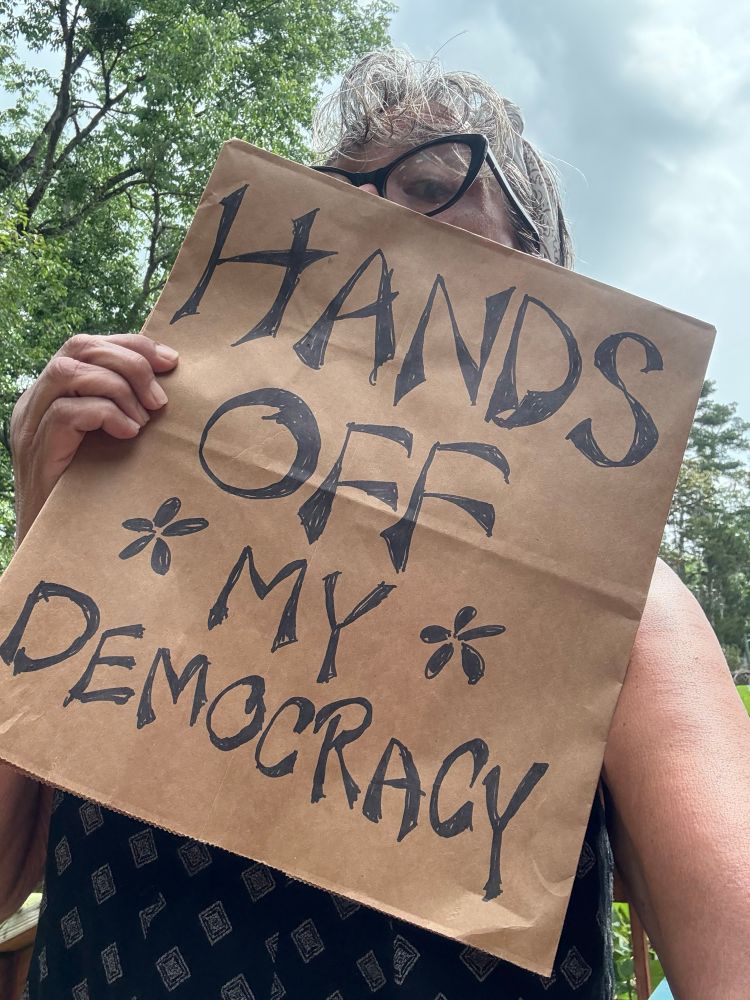 HANDS
OFF
MY
DEMOCRACY